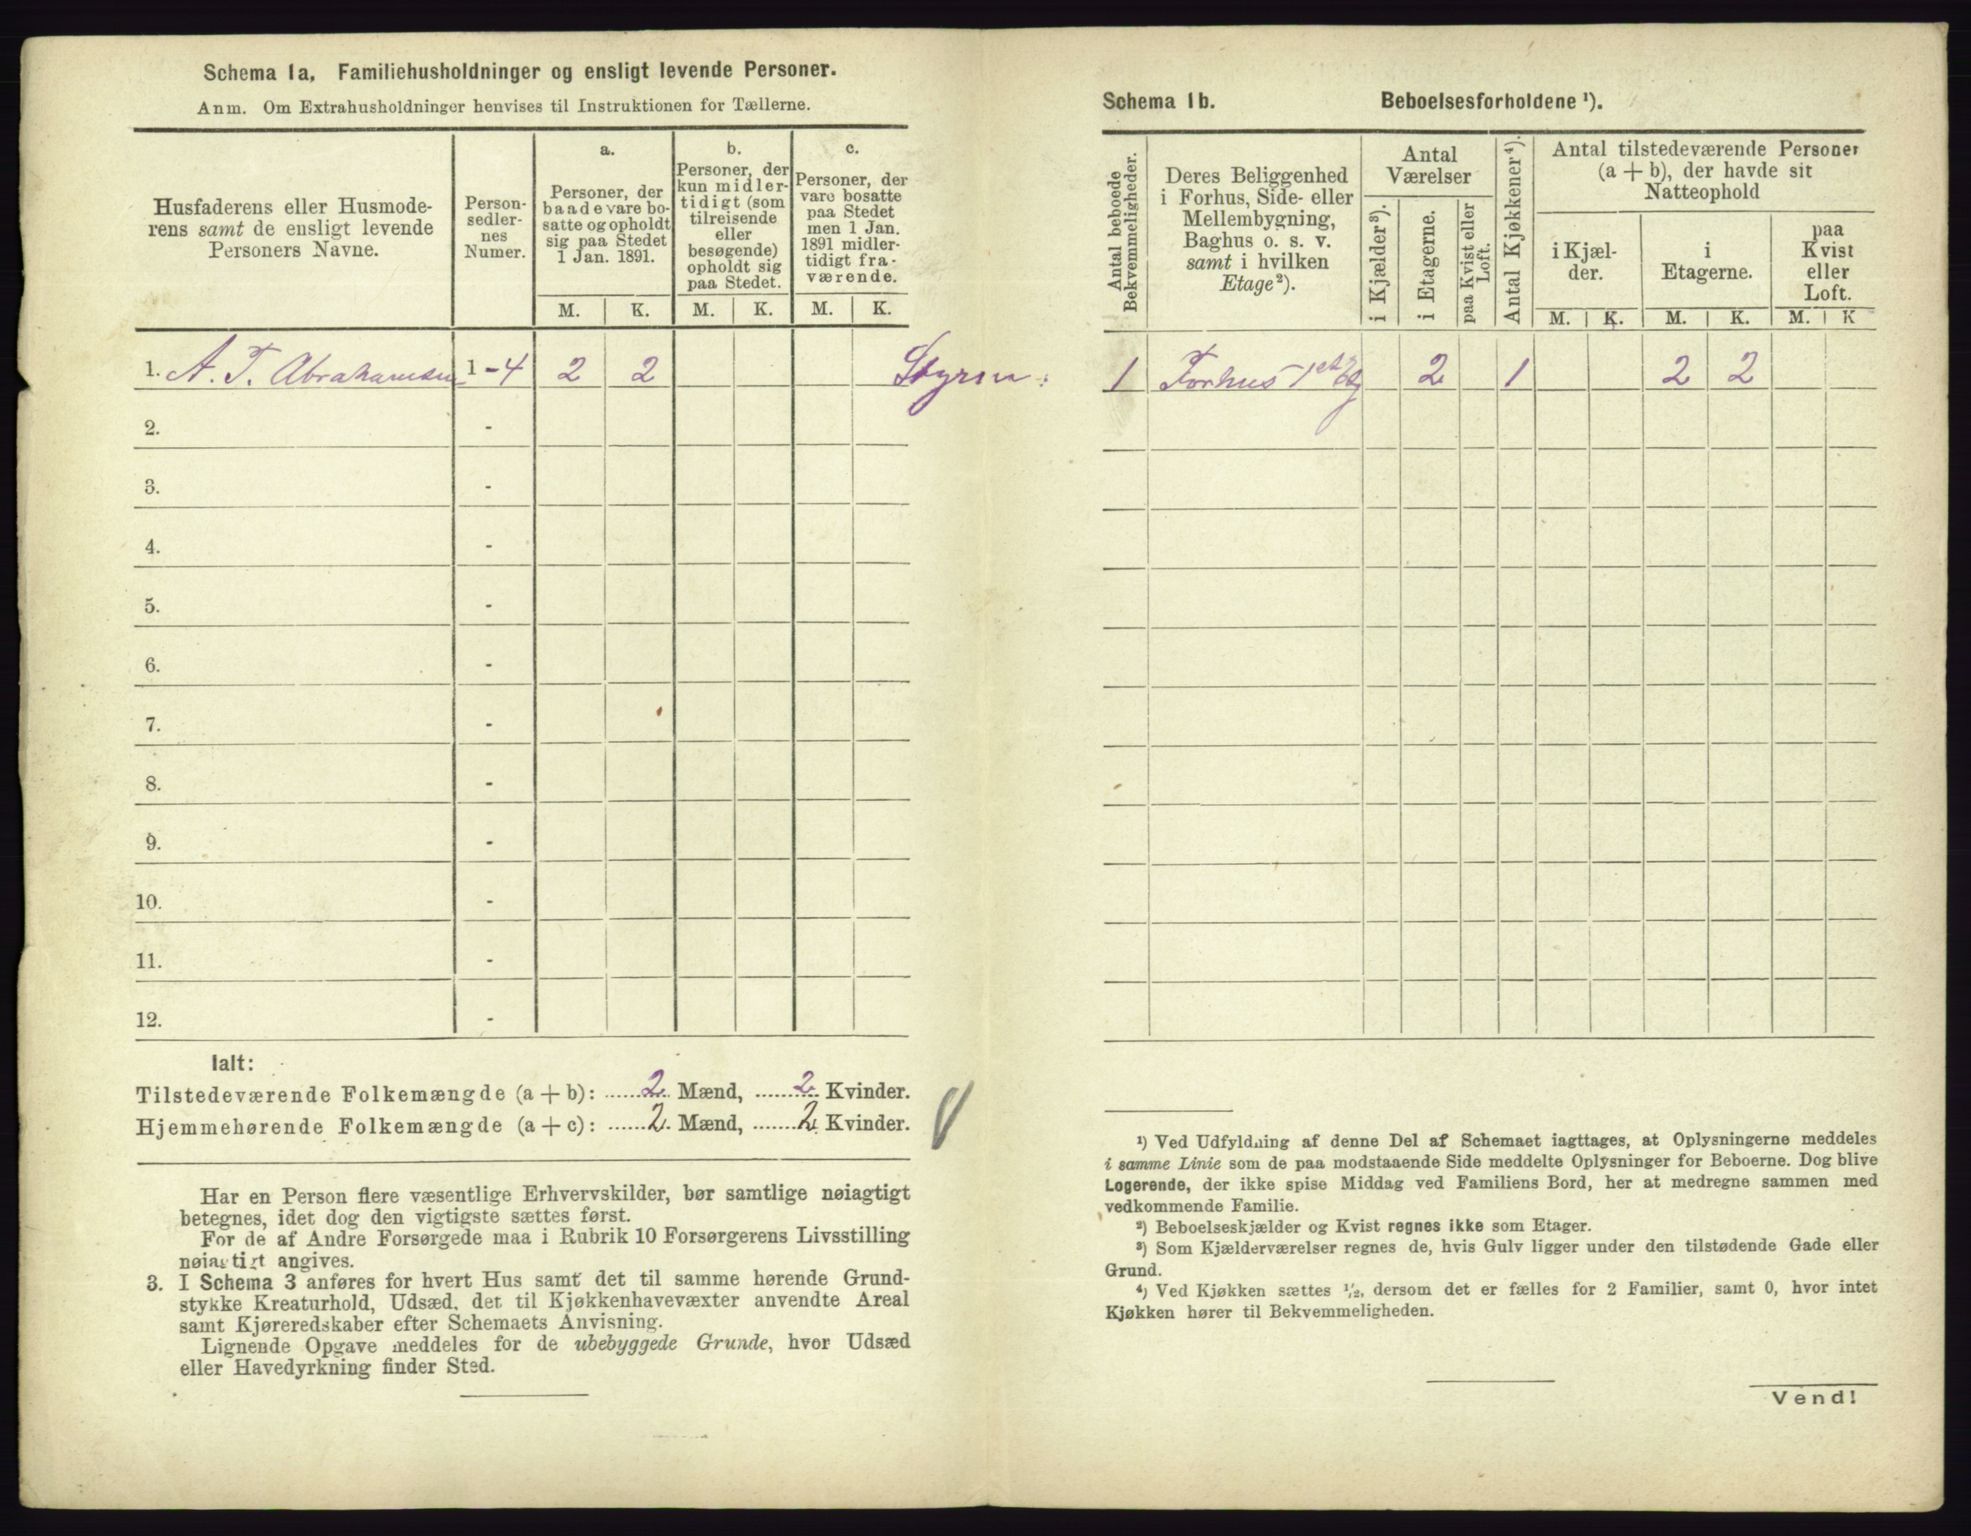 Schema 1a, Familiehusholdninger og ensligt levende Personer.
Anm. Om Extrahusholdninger henvises til Instruktionen for Tællerne.
Husfaderens eller Husmode-
rens samt de ensligt levende
Personers Navne.
Person-
sedler-
nes
Numer.
a.
Personer, der
baade vare bo-
satte og opholdt
sig paa Stedet
1 Jan. 1891.
b.
Personer, der
kun midler-
tidigt (som
tilreisende
eller
besøgende)
opholdt sig
paa Stedet.
c.
Personer, der
vare bosatte
paa Stedet
men 1 Jan.
1891 midler-
tidigt fra-
værende.
M. K. M. K. M. K.
1. A. T. Abrahamsen 1-4 2 2
2. -
3. -
4. -
5. -
6. -
7. -
8. -
9. -
10. -
11. -
12. -
Ialt:
Tilstedeværende Folkemængde (a + b): 2 Mænd, 2 Kvinder.
Hjemmehørende Folkemængde (a + c): 2 Mænd, 2 Kvinder.
Har en Person flere væsentlige Erhvervskilder, bør samtlige nøiagtigt
betegnes, idet dog den vigtigste sættes først.
For de af Andre Forsørgede maa i Rubrik 10 Forsørgerens Livsstilling
nøiagtigt angives.
3. I Schema 3 anføres for hvert Hus samt det til samme hørende Grund-
stykke Kreaturhold, Udsæd, det til Kjøkkenhavevæxter anvendte Areal
samt Kjøreredskaber efter Schemaets Anvisning.
Lignende Opgave meddeles for de ubebyggede Grunde, hvor Udsæd
eller Havedyrkning finder Sted.
Schema 1b. Beboelsesforholdene ¹).
Antal beboede
Bekvemmeligheder.
Deres Beliggenhed
i Forhus, Side- eller
Mellembygning,
Baghus o. s. v.
samt i hvilken
Etage²).
Antal
Værelser
i Kjælder³).
i Etagerne.
paa Kvist eller
Loft.
Antal Kjøkkener⁴).
Antal tilstedeværende Personer
(a + b), der havde sit
Natteophold
i Kjæl-
der.
i
Etagerne.
paa
Kvist
eller
Loft.
M. K. M. K. M. K
1 Forhus 1 Etg 2 1 2 2
¹) Ved Udfyldning af denne Del af Schemaet iagttages, at Oplysningerne meddeles
i samme Linie som de paa modstaaende Side meddelte Oplysninger for Beboerne. Dog blive
Logerende, der ikke spise Middag ved Familiens Bord, her at medregne sammen med
vedkommende Familie.
²) Beboelseskjælder og Kvist regnes ikke som Etager.
³) Som Kjælderværelser regnes de, hvis Gulv ligger under den tilstødende Gade eller
Grund.
⁴) Ved Kjøkken sættes ¹/₂, dersom det er fælles for 2 Familier, samt 0, hvor intet
Kjøkken hører til Bekvemmeligheden.
Vend!